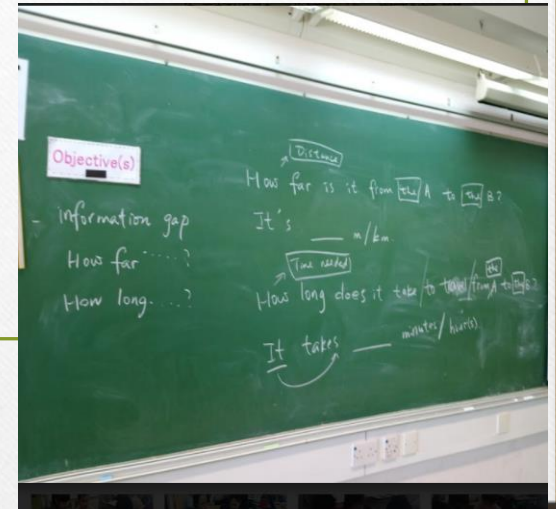 Objective(s)
- information gap
How far ....?
How long ....?
Distance
How far is it from the A to the B?
It's ___ m/km.
Time needed
How long does it take / to travel / from the A to the B?
It takes ___ minutes/hour(s)